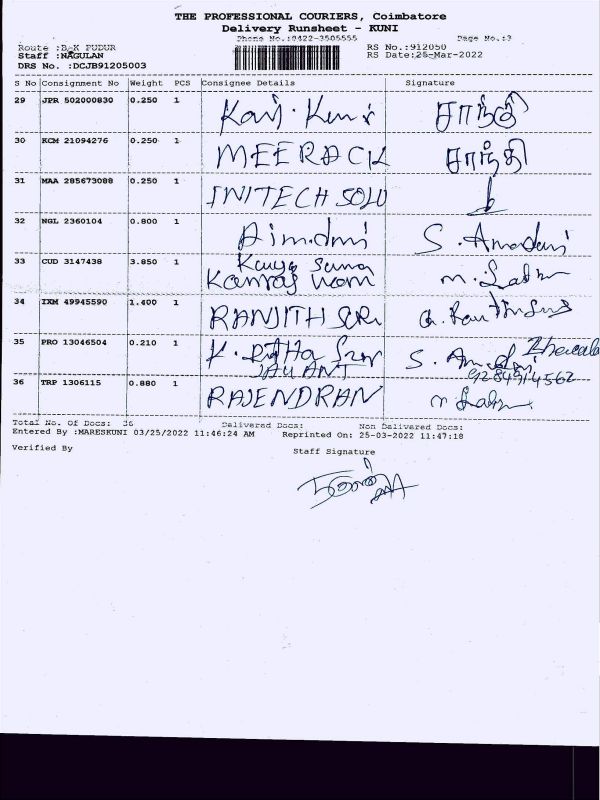 THE PROFESSIONAL COURIERS, Coimbatore
Delivery Runsheet - KUNI
Phone No.:0422-3505555 Page No.:3
Route :B-K PUDUR RS No.:912050
Staff :NAGULAN RS Date:25-Mar-2022
DRS No. :DCJB91205003
S No Consignment No Weight PCS Consignee Details Signature
29 JPR 502000830 0.250 1 சாந்தி
30 KCM 21094276 0.250 1 MEERACK சாந்தி
31 MAA 285673088 0.250 1 INITECH SOLU
32 NGL 2360104 0.800 1
33 CUD 3147438 3.850 1
34 IXM 49945590 1.400 1 RANJITH
35 PRO 13046504 0.210 1 K.
JAYANT
36 TRP 1306115 0.880 1 RAJENDRAN
Total No. Of Docs: 36 Delivered Docs: Non Delivered Docs:
Entered By :MARESKUNI 03/25/2022 11:46:24 AM Reprinted On: 25-03-2022 11:47:18
Verified By Staff Signature